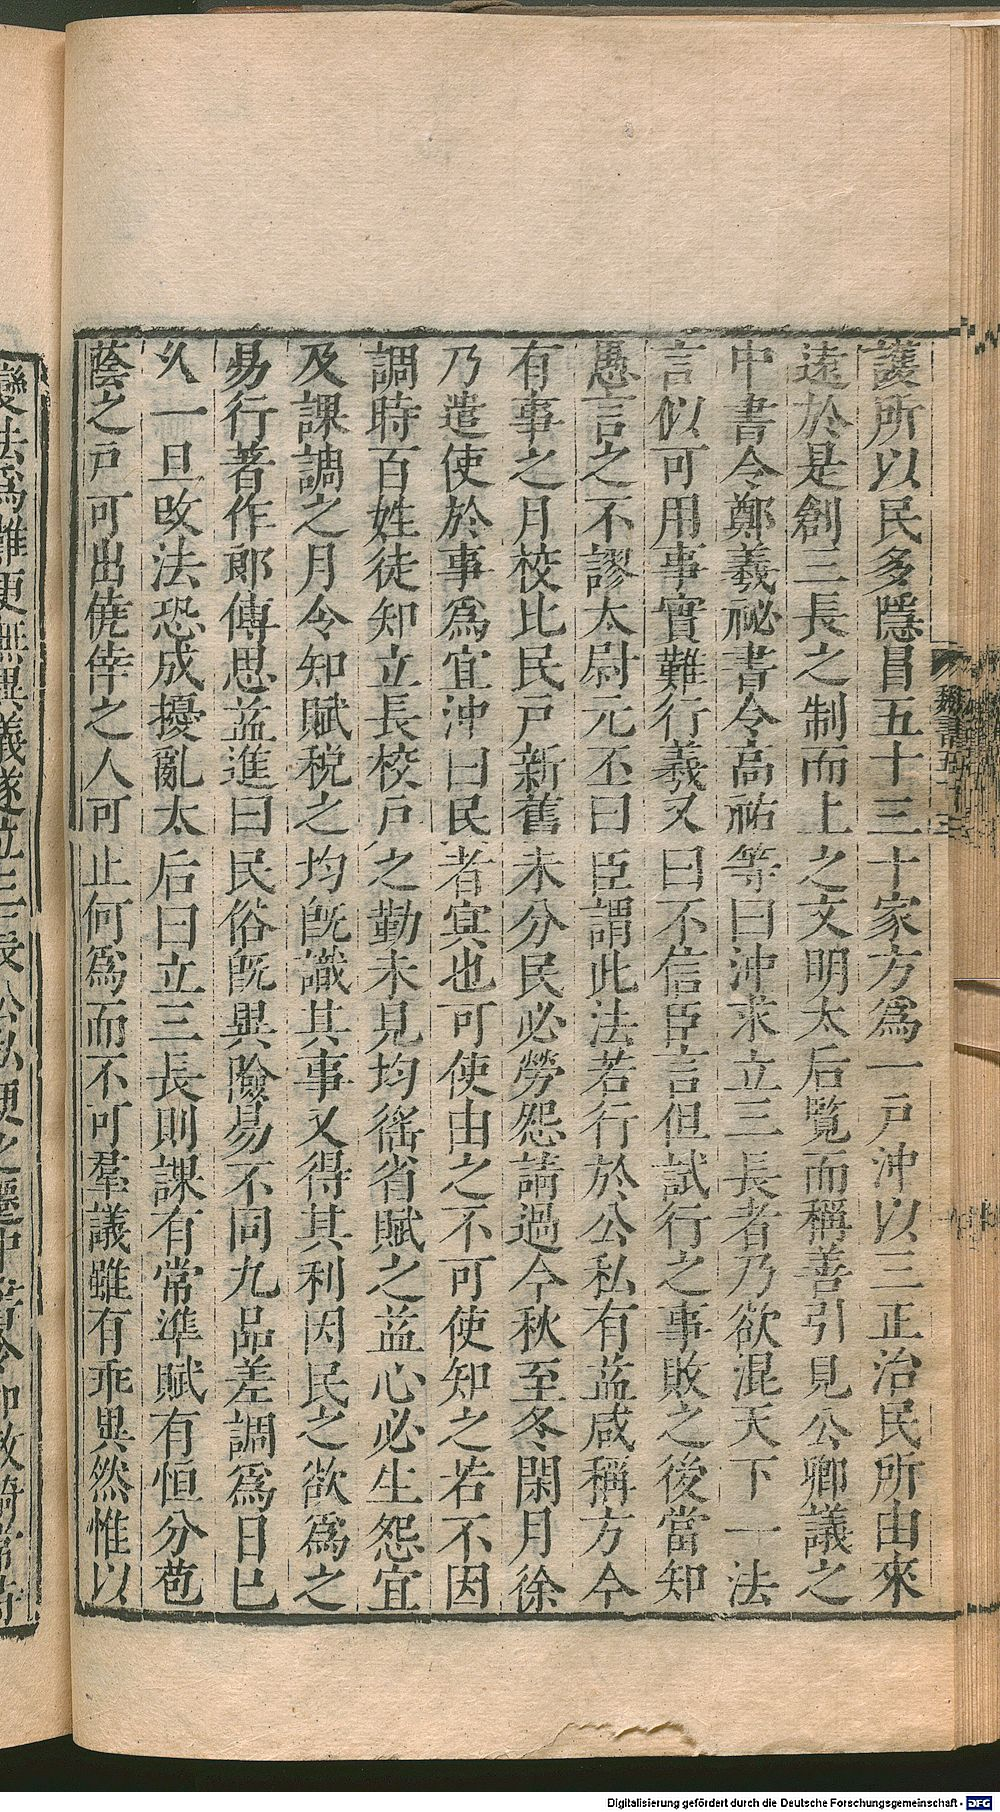 護所以民多隱冒五十三十家方爲一戸沖以三正治民所由來
遠於是創三長之制而上之文明太后覽而稱善引見公卿議之
中書令鄭羲祕書令高祐等曰沖求立三長者乃欲混天下一法
言似可用事實難行羲又曰不信臣言但試行之事敗之後當知
愚言之不謬太尉元丕曰臣謂此法若行於公私有益咸稱方今
有事之月校比民戸新舊未分民必勞怨請過今秋至冬閑月徐
乃遣使於事爲宜沖曰民者㝠也可使由之不可使知之若不因
調時百姓徒知立長校戸之勤未見均徭省賦之益心必生怨宜
及課調之月令知賦稅之均旣識其事又得其利因民之欲爲之
易行著作郎傅思益進曰民俗旣異險易不同九品差調爲日已
久一旦改法恐成擾亂太后曰立三長則課有常準賦有恒分苞
蔭之戸可出僥倖之人可止何爲而不可羣議雖有乖異然惟以
變法爲難更無異議遂立三長公私便之遷中書令加散騎常侍
魏書五十三
Digitalisierung gefördert durch die Deutsche Forschungsgemeinschaft - DFG